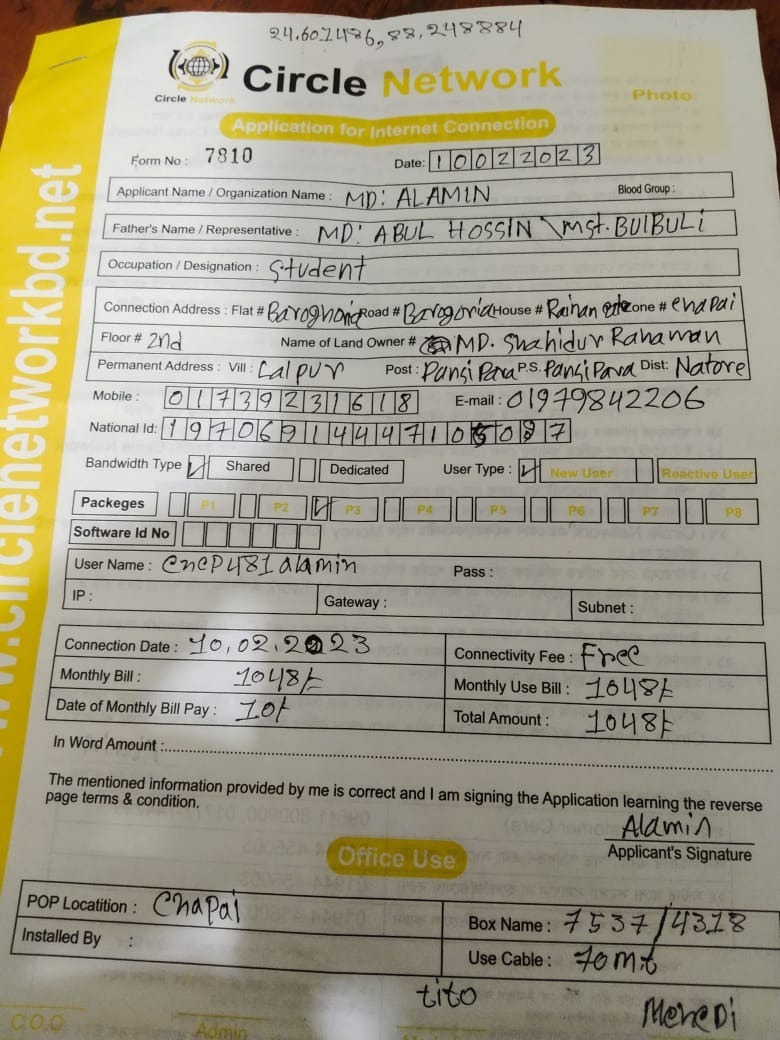 24.601486, 88.248884
Circle Network
Circle Network
Photo
Application for Internet Connection
www.circlenetworkbd.net
Form No : 7810
Date: 10022023
Applicant Name / Organization Name : MD: ALAMIN Blood Group :
Father's Name / Representative : MD: ABUL HOSSIN \ Mst. BUlBULi
Occupation / Designation : Student
Connection Address : Flat # Road # House # Raihan Zone # Chapai
Floor # 2nd Name of Land Owner # MD. Shahidur Rahaman
Permanent Address : Vill : Lalpur Post : Pansi Para P.S. Pansi Para Dist: Natore
Mobile : 01739231618 E-mail : 01979842206
National Id:
Bandwidth Type Shared Dedicated User Type : New User Reactive User
Packeges P1 P2 P3 P4 P5 P6 P7 P8
Software Id No
User Name : CnCP481alamin Pass :
IP : Gateway : Subnet :
Connection Date : 10.02.2023 Connectivity Fee : Free
Monthly Bill : 1048/- Monthly Use Bill : 1048/-
Date of Monthly Bill Pay : 10/- Total Amount : 1048/-
In Word Amount :
The mentioned information provided by me is correct and I am signing the Application learning the reverse
page terms & condition.
Alamin
Applicant's Signature
Office Use
POP Locatition : Chapai Box Name : 7537/4318
Installed By : Use Cable : 70mt
tito Mehedi
C.O.O Admin